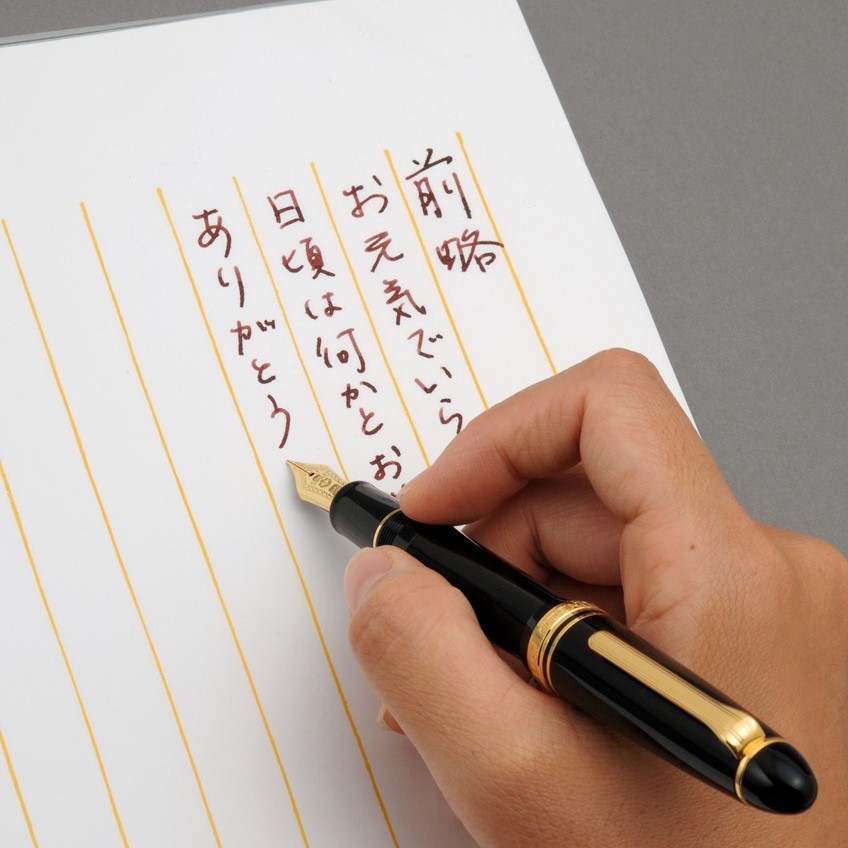 前略
お元気でいら
日頃は何かとお
ありがとう